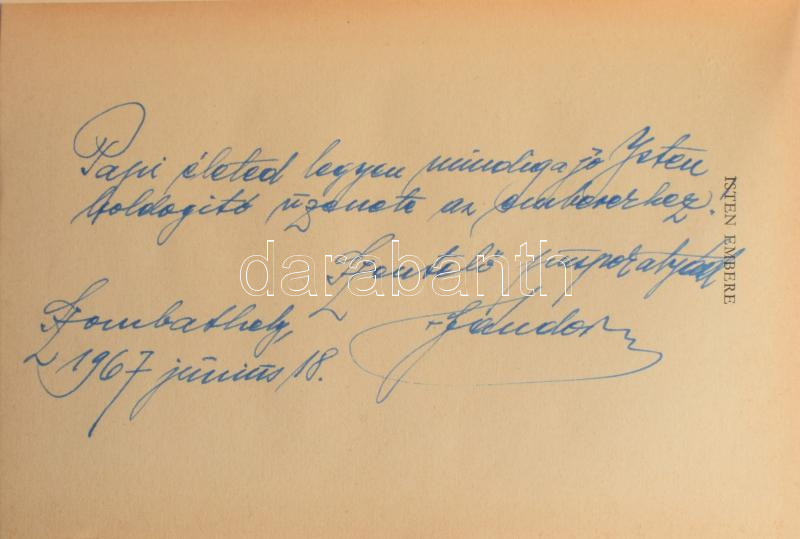 Papi életed legyen mindig a jó Isten
boldogító üzenete az emberekhez.
Szentelő püspökatyád
+ Sándor
Szombathely,
1967 június 18.
ISTEN EMBERE
darabanth